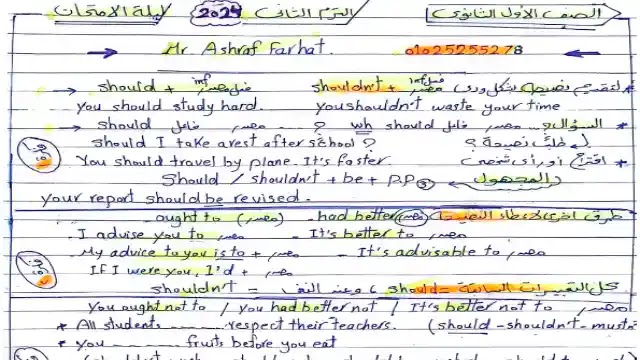 الصف الأول الثانوى الترم الثانى 2024 ليلة الامتحان
→ Mr. Ashraf Farhat. 01025255278 ←
* لتقديم نصيحة بشكل ودى shouldn't + inf مصدر should + inf فعل مصدر ←
You should study hard. You shouldn't waste your time
* السؤال:- ? مصدر فاعل wh should ? ... مصدر فاعل should ←
Should I take a rest after school? (لطلب نصيحة)
You should travel by plane. It's faster. * اقتراح أو رأى شخصى
Should / shouldn't + be + P.P ③ ← المجهول
your report should be revised.
ought to (مصدر) - had better مصدر طرق اخرى لاعطاء النصيحة
- I advise you to مصدر - It's better to مصدر
- My advice to you is to + مصدر - It's advisable to مصدر
- If I were you, I'd + مصدر
كل التعبيرات السابقة = should ، وعند النفى = shouldn't
You ought not to / you had better not / It's better not to مصدر
* All students ............ respect their teachers. (should - shouldn't - must
* You ............ fruits before you eat